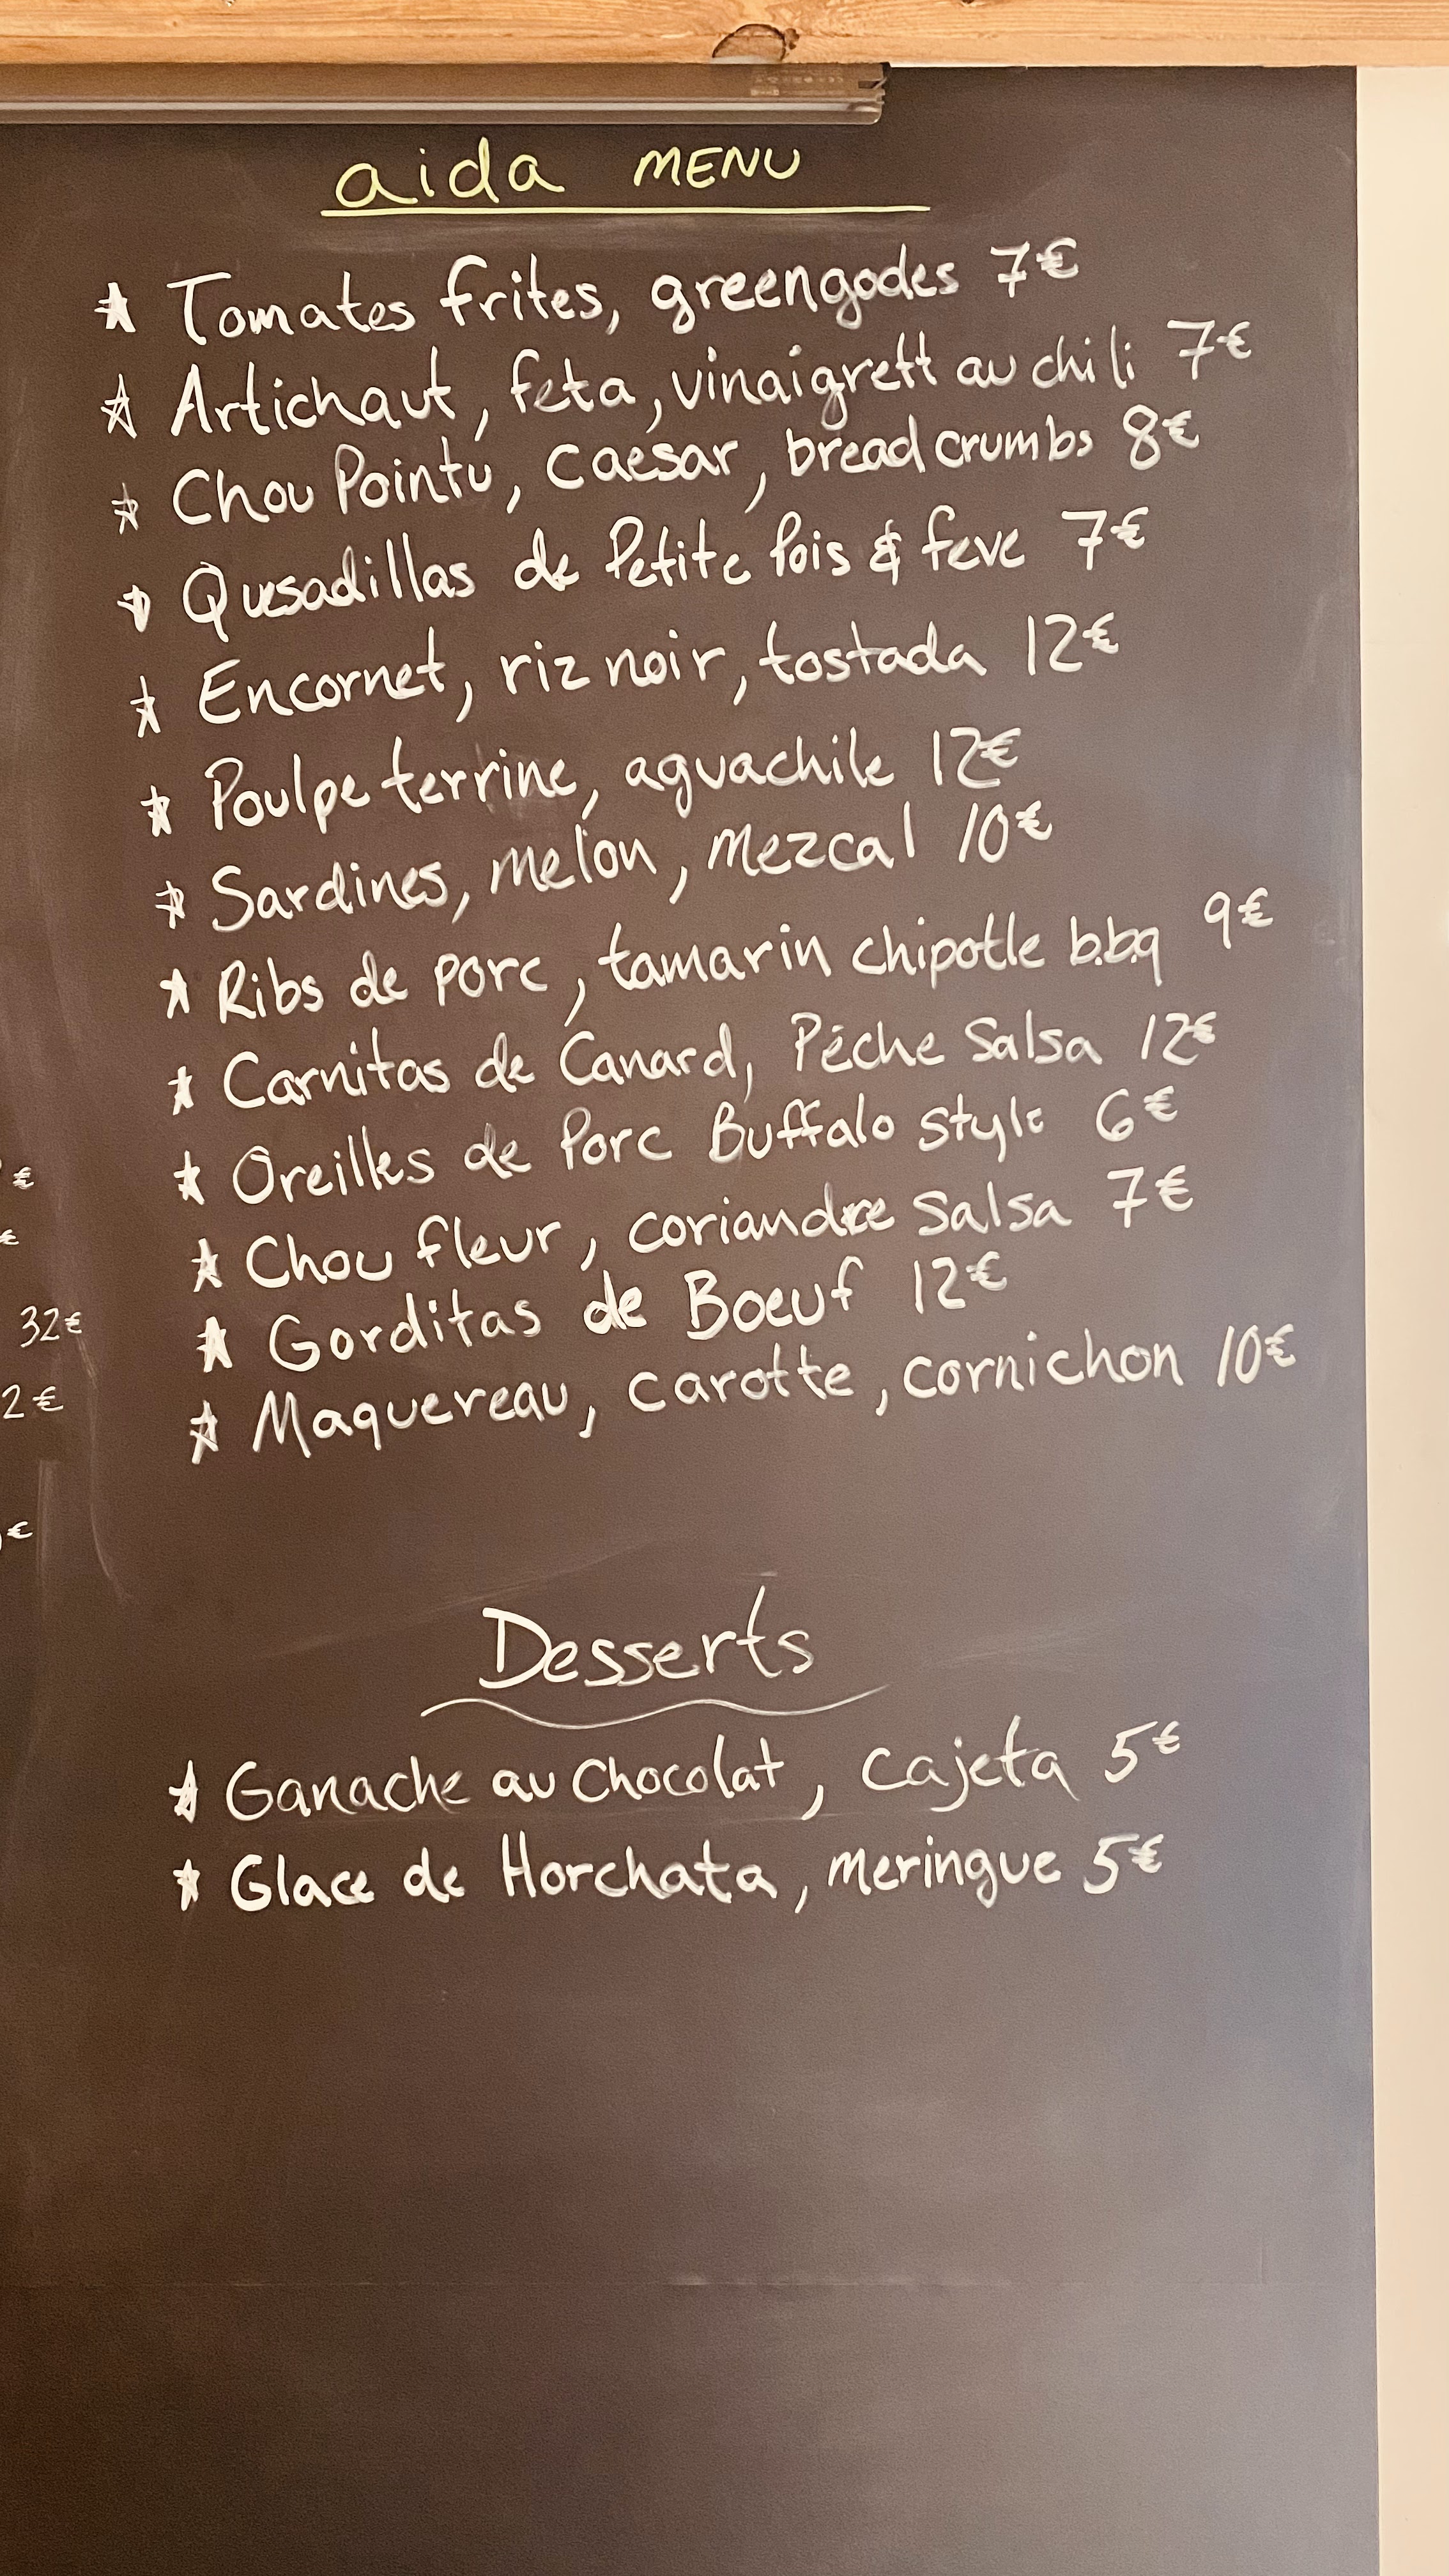 aida MENU
* Tomates frites, greengodes 7€
* Artichaut, feta, vinaigrett au chili 7€
* Chou Pointu, Caesar, bread crumbs 8€
* Quesadillas de Petite Pois & feve 7€
* Encornet, riz noir, tostada 12€
* Poulpe terrine, aguachile 12€
* Sardines, melon, mezcal 10€
* Ribs de porc, tamarin chipotle b.b.q 9€
* Carnitas de Canard, Pêche Salsa 12€
* Oreilles de Porc Buffalo style 6€
* Chou fleur, coriandre salsa 7€
* Gorditas de Boeuf 12€
* Maquereau, carotte, cornichon 10€
Desserts
* Ganache au Chocolat, Cajeta 5€
* Glace de Horchata, meringue 5€
€
€
32€
2€
€